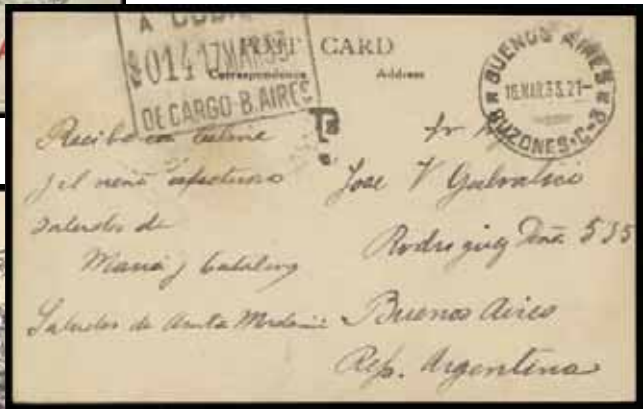 A COBRAR
$0.14 17MAR33
DE CARGO B. AIRES
POST CARD
Correspondence Address
BUENOS AIRES
16.MAR.33.21-
BUZONES-C-3
T
Reciba
y el nene afectuoso
saludos de
Maria y Catalina
Saludos de Anita
Jose V
Rodriguez Peña 535
Buenos Aires
Rep. Argentina